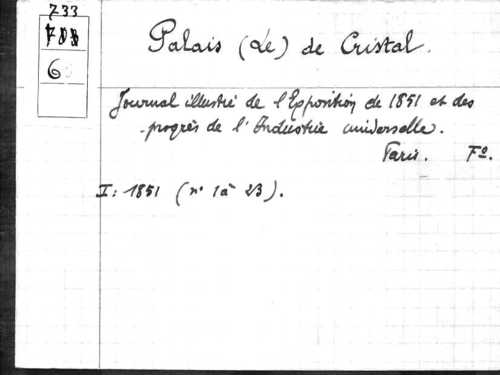 733
6
Palais (Le) de Cristal.
Journal illustré de l'Exposition de 1851 et des
progrès de l'Industrie universelle.
Paris. Fº.
I: 1851 (nº 1 à 23).